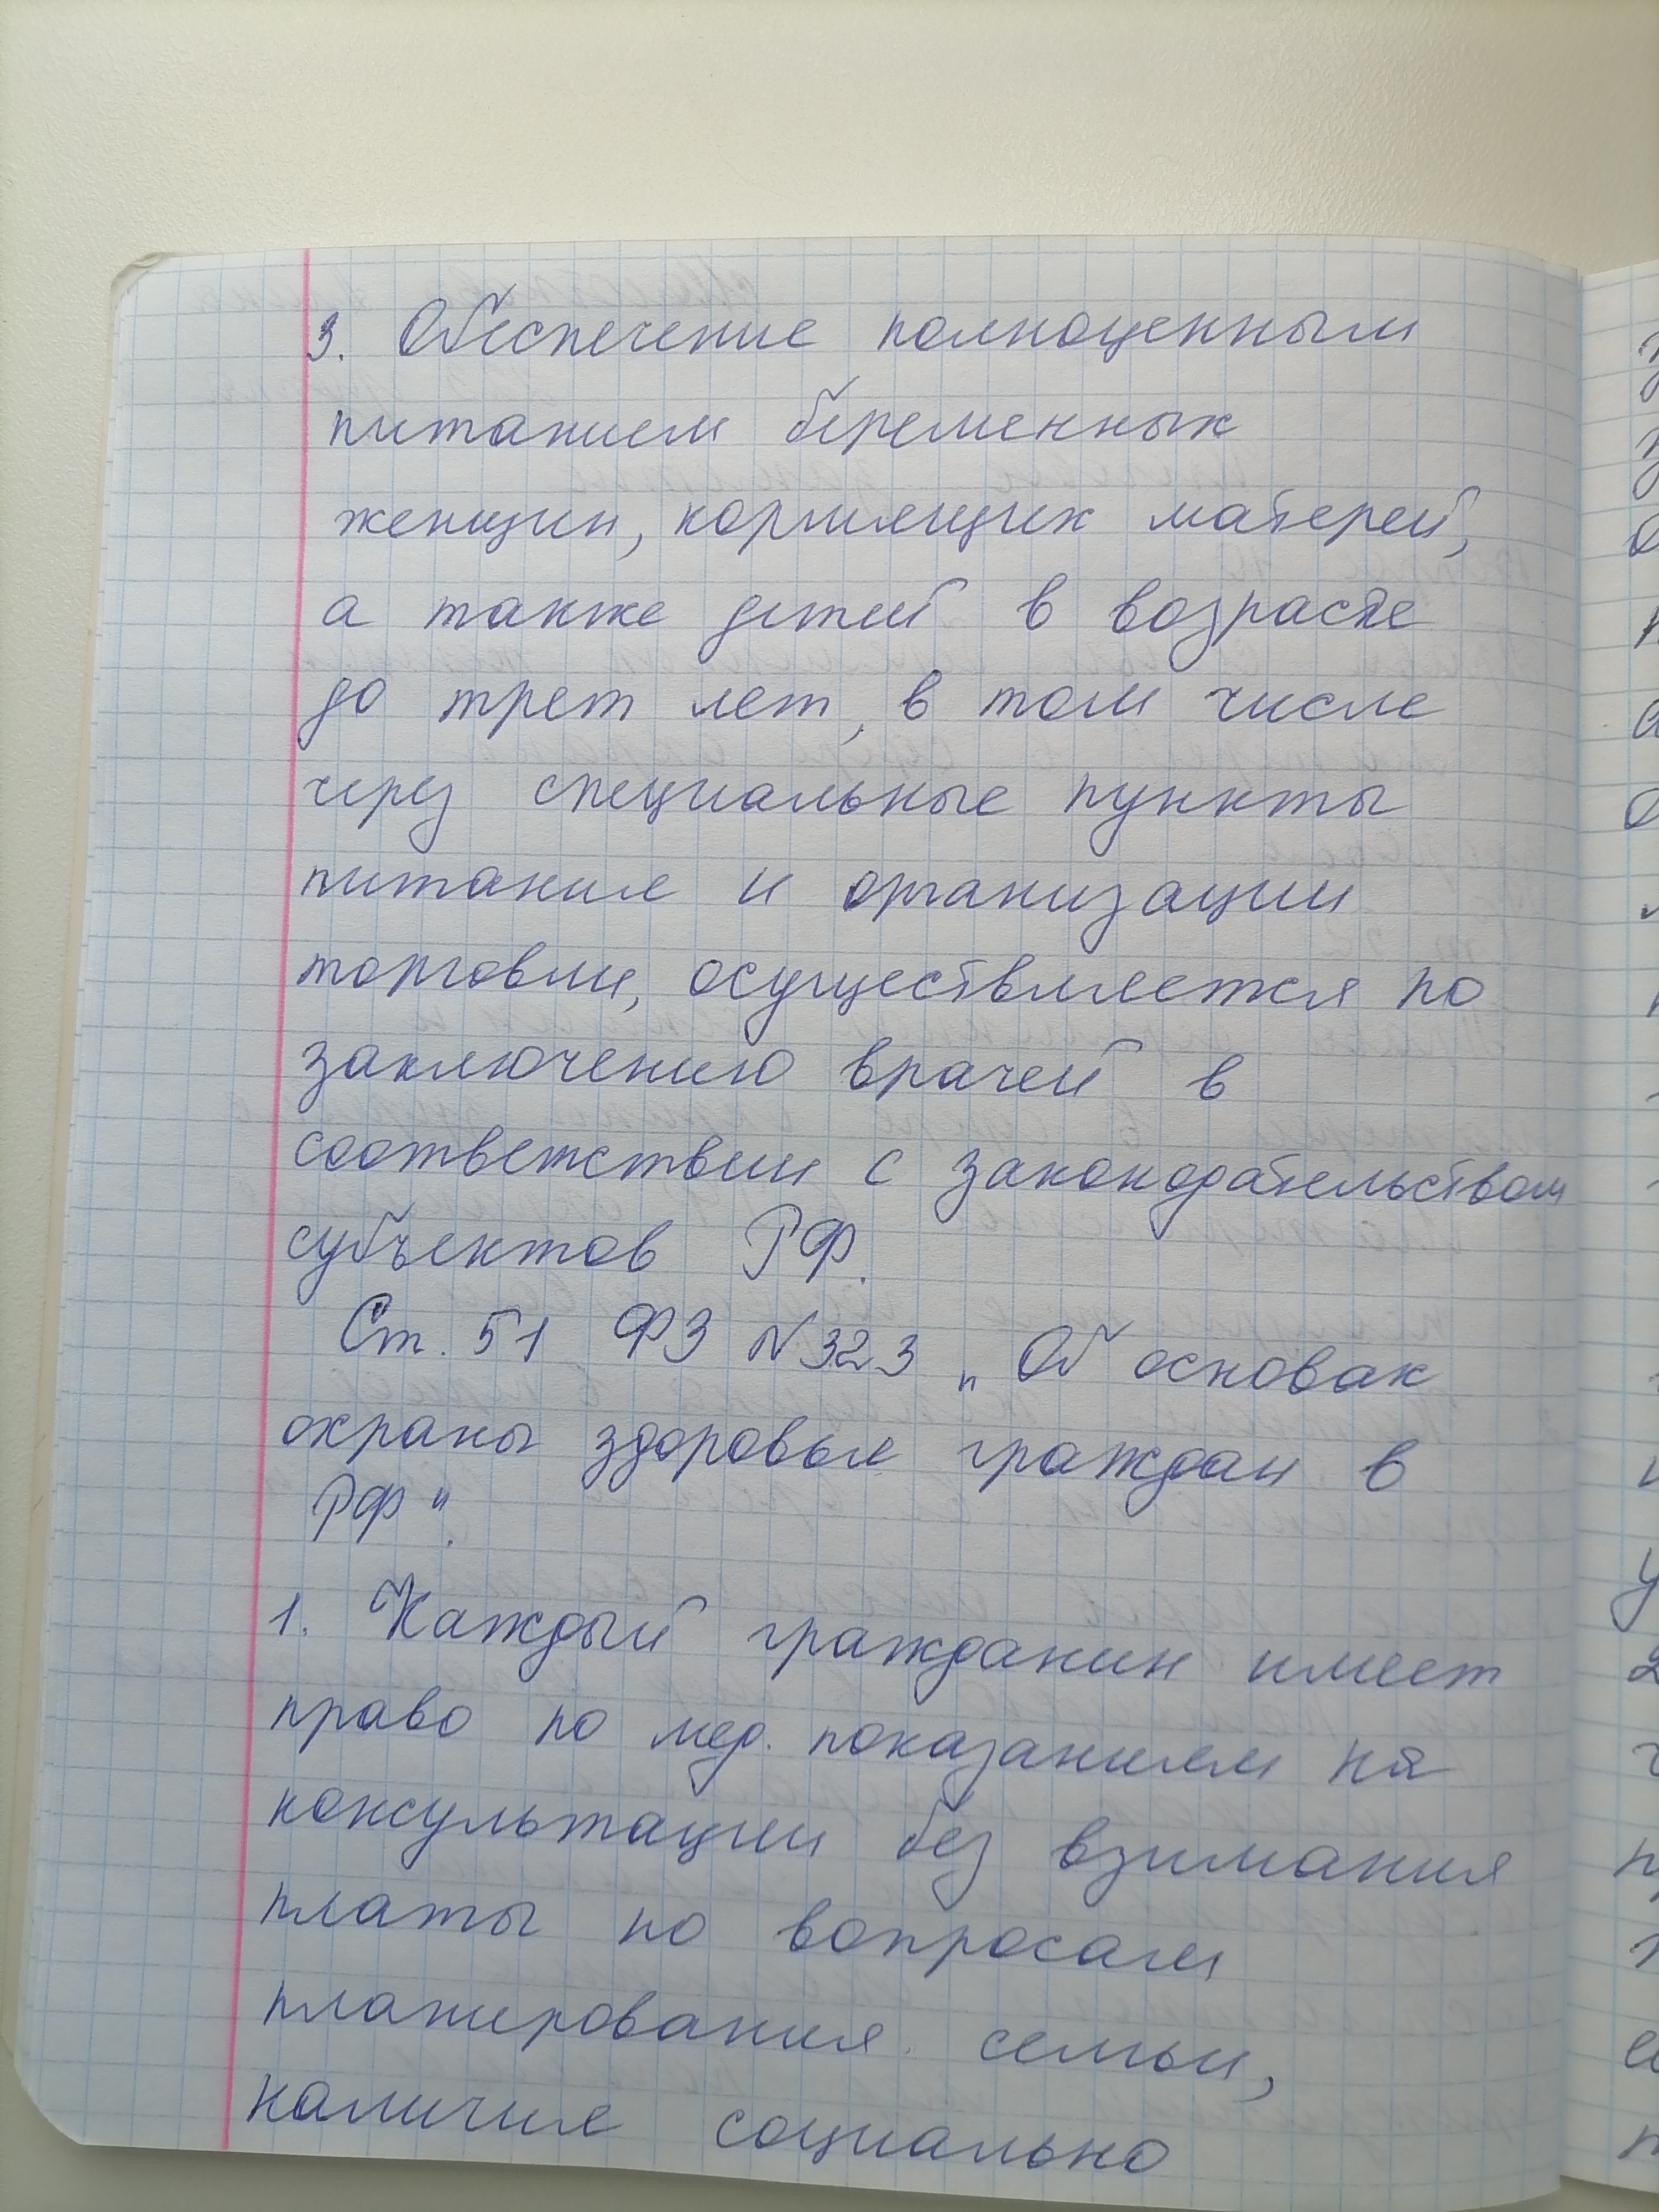 3. Обеспечение полноценным
питанием беременных
женщин, кормящих матерей,
а также детей в возрасте
до трет лет, в том числе
через специальные пункты
питания и организации
торговли, осуществляется по
заключению врачей в
соответствии с законодательством
субъектов РФ.
Ст. 51 ФЗ №323 „Об основах
охраны здоровья граждан в
РФ".
1. Каждый гражданин имеет
право по мед. показаниям на
консультации без взимания
платы по вопросам
планирования семьи,
наличия социально